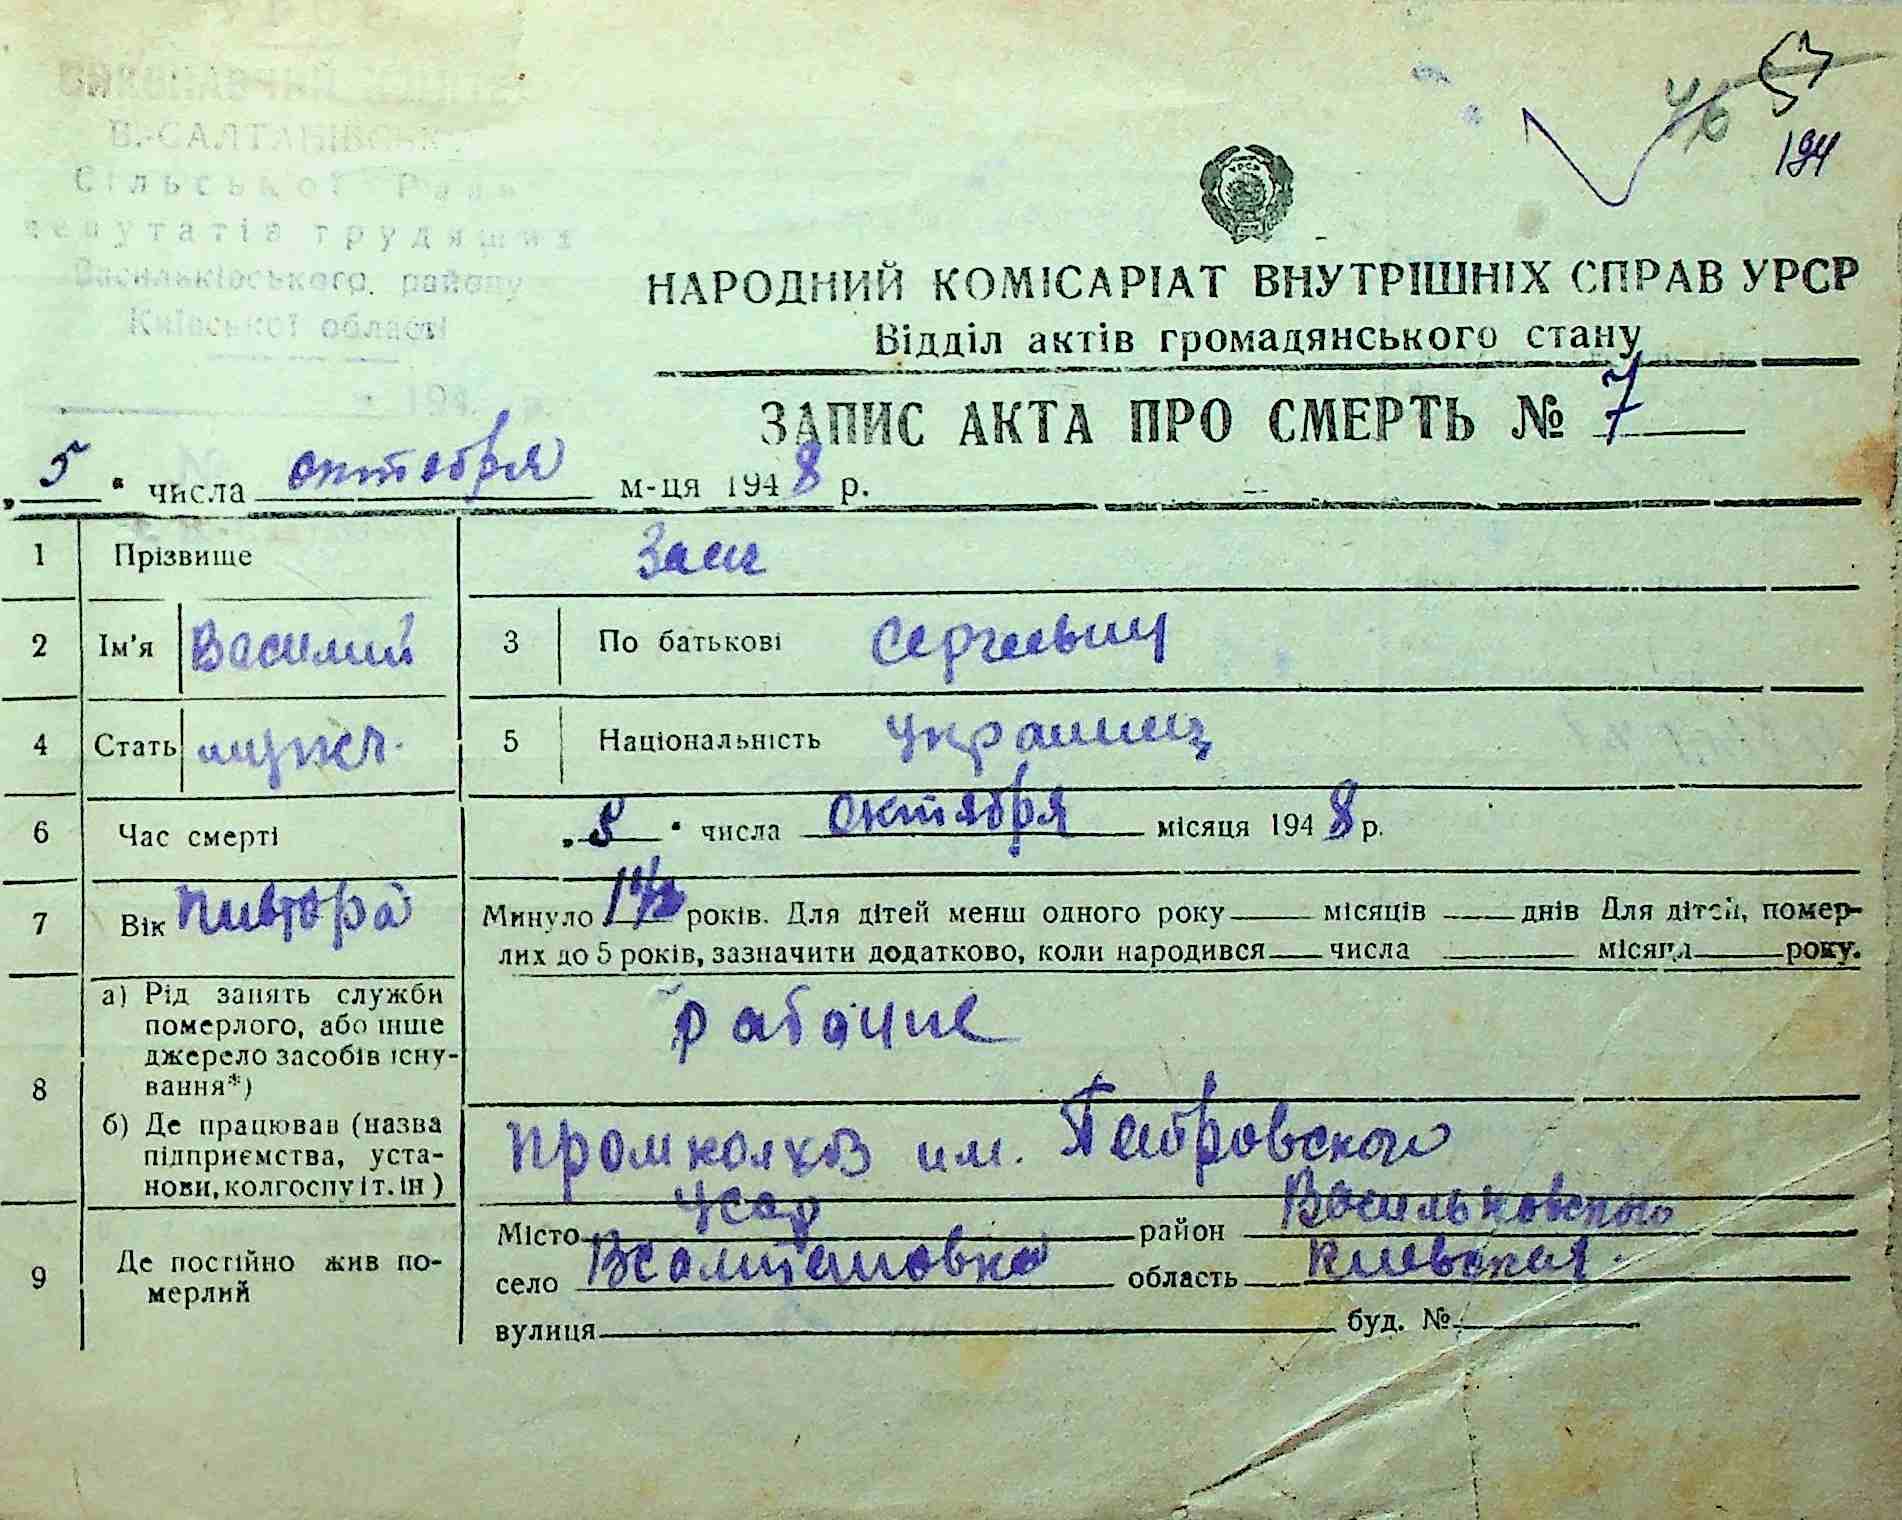 ВИКОНАВЧИЙ КОМІТЕТ
В.-САЛТАНІВСЬК
Сільської Ради
депутатів трудящих
Васильківського району
Київської області
194 р.
46
194
УРСР
НАРОДНИЙ КОМІСАРІАТ ВНУТРІШНІХ СПРАВ УРСР
Відділ актів громадянського стану
ЗАПИС АКТА ПРО СМЕРТЬ № 7
„5“ числа октебря м-ця 1948 р.
1 Прізвище Заец
2 Ім'я Василий 3 По батькові Сергеевич
4 Стать мужч. 5 Національність украинец
6 Час смерті „5“ числа октября місяця 1948 р.
7 Вік пивтора Минуло 1 1/2 років. Для дітей менш одного року місяців днів Для дітей, помер-
лих до 5 років, зазначити додатково, коли народився числа місяця року.
8 а) Рід занять служби
померлого, або інше
джерело засобів існу-
вання*) рабочие
б) Де працював (назва
підприємства, уста-
нови, колгоспу і т. ін) промколхоз им. Петровского
9 Де постійно жив по-
мерлий
Місто УССР район Васильковского
село ВСалтановка область Киевская.
вулиця буд. №